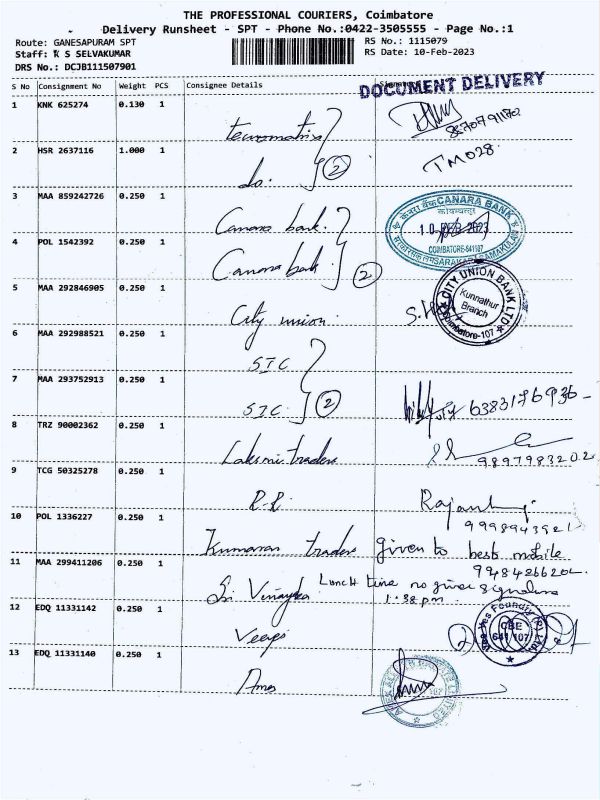 THE PROFESSIONAL COURIERS, Coimbatore
Delivery Runsheet - SPT - Phone No.:0422-3505555 - Page No.:1
Route: GANESAPURAM SPT
RS No.: 1115079
Staff: K S SELVAKUMAR
RS Date: 10-Feb-2023
DRS No.: DCJB111507901
S No Consignment No Weight PCS Consignee Details
DOCUMENT DELIVERY
1 KNK 625274 0.130 1
8870791170
2 HSR 2637116 1.000 1 do. 2
TM028
3 MAA 859242726 0.250 1 Canara bank.
CANARA BANK
10 FEB 2023
COIMBATORE-641107
4 POL 1542392 0.250 1 Canara bank 2
5 MAA 292846905 0.250 1 City union.
CITY UNION BANK LTD
Kunnathur
Branch
Coimbatore-107
6 MAA 292988521 0.250 1 STC
7 MAA 293752913 0.250 1 STC 2
6383176936
8 TRZ 90002362 0.250 1 Laksmi traders
9897983202
9 TCG 50325278 0.250 1 R.R.
10 POL 1336227 0.250 1 Kumaran traders given to best mobile
9948426620
11 MAA 299411206 0.250 1 Sri Vinayka Lunch time no given signature
1.38 pm.
12 EDQ 11331142 0.250 1
CBE
641 107
13 EDQ 11331140 0.250 1